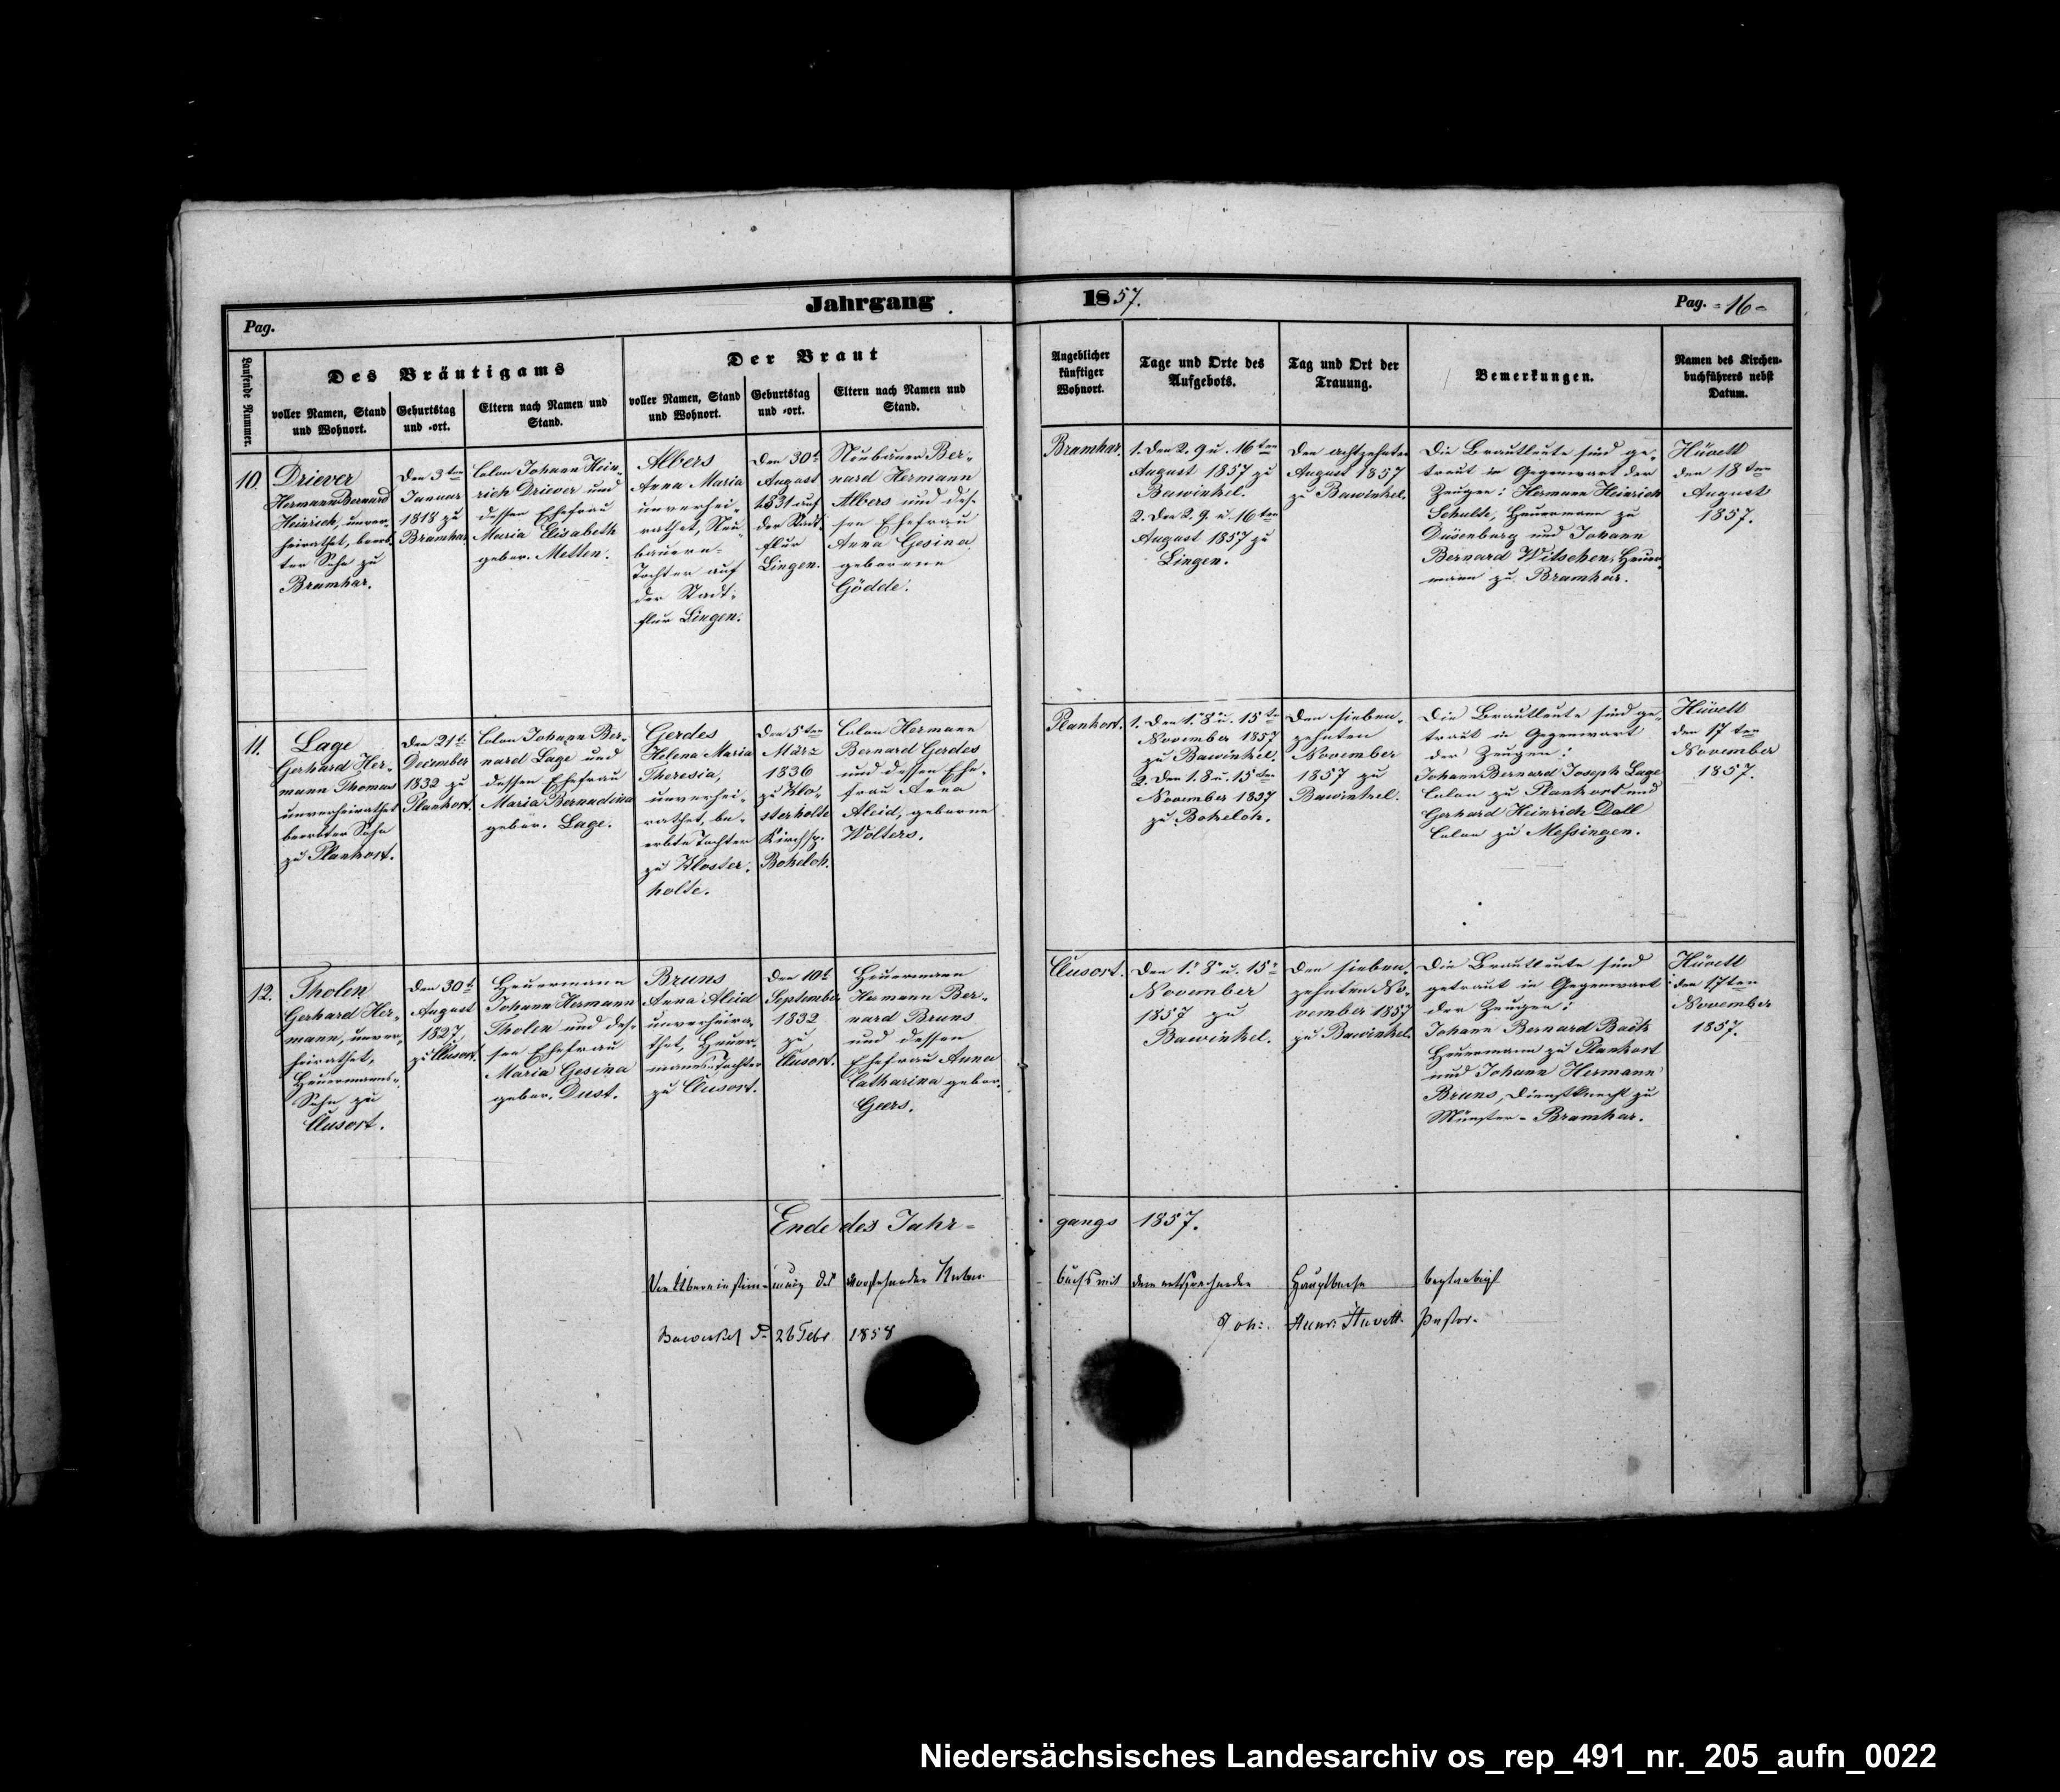 Jahrgang 1857.
Pag.
Pag. =16=
Laufende Nummer.
Des Bräutigams
voller Namen, Stand
und Wohnort.
Geburtstag
und -ort.
Eltern nach Namen und
Stand.
Der Braut
voller Namen, Stand
und Wohnort.
Geburtstag
und -ort.
Eltern nach Namen und
Stand.
Angeblicher
künftiger
Wohnort.
Tage und Orte des
Aufgebots.
Tag und Ort der
Trauung.
Bemerkungen.
Namen des Kirchen-
buchführers nebst
Datum.
10.
Driever
Hermann Bernard
Heinrich, unver-
heirathet, beerb-
ter Sohn zu
Bramhar.
Den 3ten
Januar
1818 zu
Bramhar.
Colon Johann Hein-
rich Driever und
dessen Ehefrau
Maria Elisabeth
gebor. Metten.
Albers
Anna Maria
unverhei-
rathet, Neu-
bauern-
Tochter auf
der Stadt-
flur Lingen.
Den 30t
August
1831 auf
der Stadt-
flur
Lingen.
Neubauer Ber-
nard Hermann
Albers und des-
sen Ehefrau
Anna Gesina
geborene
Gödde.
Bramhar.
1. Den 2. 9 u. 16ten
August 1857 zu
Bawinkel.
2. Den 2. 9. u. 16ten
August 1857 zu
Lingen.
Den achtzehnten
August 1857
zu Bawinkel.
Die Brautleute sind ge-
traut in Gegenwart der
Zeugen: Hermann Heinrich
Schulte, Heuermann zu
Düsenburg und Johann
Bernard Witschen, Heuer-
mann zu Bramhar.
Hüvett
den 18ten
August
1857.
11.
Lage
Gerhard Her-
mann Thomas
unverheirathet
beerbter Sohn
zu Plankort.
Den 21t
December
1832 zu
Plankort.
Colon Johann Ber-
nard Lage und
dessen Ehefrau
Maria Bernadina
gebor. Lage.
Gerdes
Helena Maria
Theresia,
unverhei-
rathet, be-
erbte Tochter
zu Kloster-
holte.
Den 5ten
März
1836
zu Klo-
sterholte
Kirchsp.
Bokeloh.
Colon Hermann
Bernard Gerdes
und dessen Ehe-
frau Anna
Aleid, geborne
Wolters.
Plankort.
1. Den 1. 8 u. 15te
November 1857
zu Bawinkel.
2. Den 1. 8 u. 15ten
November 1857
zu Bokeloh.
Den sieben-
zehnten
November
1857 zu
Bawinkel.
Die Brautleute sind ge-
traut in Gegenwart
der Zeugen:
Johann Bernard Joseph Lage
Colon zu Plankort und
Gerhard Heinrich Dall
Colon zu Messingen.
Hüvett
den 17ten
November
1857.
12.
Tholen
Gerhard Her-
mann, unver-
heirathet,
Heuermanns-
Sohn zu
Clusort.
Den 30t
August
1827
zu Clusort.
Heuermann
Johann Hermann
Tholen und des-
sen Ehefrau
Maria Gesina
gebor. Dust.
Bruns
Anna Aleid
unverheira-
thet, Heuer-
manns-Tochter
zu Clusort.
Den 10t
September
1832
zu
Clusort.
Heuermann
Hermann Ber-
nard Bruns
und dessen
Ehefrau Anna
Catharina gebor.
Geers.
Clusort.
Den 1. 8 u. 15
November
1857 zu
Bawinkel.
Den sieben-
zehnten No-
vember 1857
zu Bawinkel.
Die Brautleute sind
getraut in Gegenwart
der Zeugen:
Johann Bernard
Heuermann zu Plankort
und Johann Hermann
Bruns, Dienstknecht zu
Münster-Bramhar.
Hüvett
den 17ten
November
1857.
Ende des Jahr- gangs 1857.
Die Übereinstimmung des vorstehenden Kirchen- buchs mit dem entsprechenden Hauptbuche beglaubigt
Bawinkel d. 26 Febr 1858 Joh: Huvett Pastor.
Niedersächsisches Landesarchiv os_rep_491_nr._205_aufn_0022